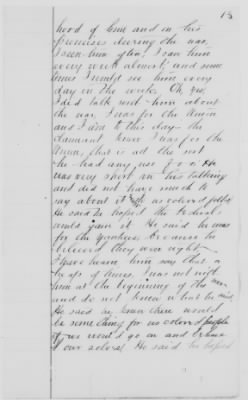 13
hood of time and on his
premises during the war.
I seen him often. I saw him
every week almost, and some
times I would see him every
day in the week. Oh, yes,
I did talk with him about
the war. I was for the Union
and I am to this day the
I was for the
Union, that is all the
he had any use for. He
was very short in his talking
and did not have much to
say about it to us colored folks.
He said he hoped the Federals
would gain it. He said he was
for the Yankees, because he
believed they were right.
I have heard him say that a
heap of times. I was not with
him at the beginning of the war
and do not know what he said.
He said he knew there would
be something for us colored people
if we would go on and
ourselves. He said he hoped